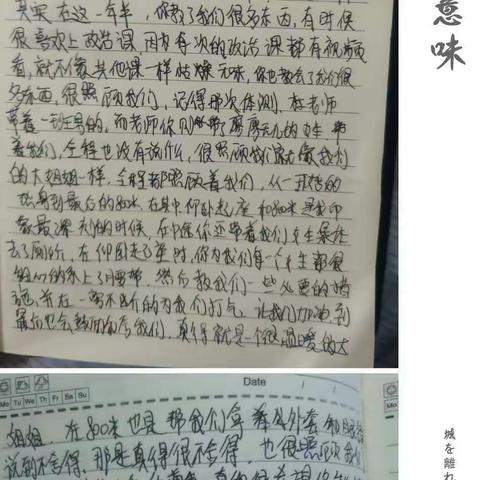 其实在这一年半，你教了我们很多东西，有时候
很喜欢上政治课，因为每次的政治课都有视频
看，就不像其他课一样枯燥无味，你也教会了我们很
多东西，很照顾我们，记得那次体测，杜老师
带着一班男的，而老师你则带了寥寥无几的女生
着我们，全程也没有说什么，很照顾我们就像我们
的大姐姐一样，全程都照顾着我们，从一开始的
到最后的800米，在其中仰卧起座和800米是我印
象最深刻的时候，在中途你还带着我们女生
去了厕所，在仰卧起坐时，你为我们每一个女生都很
细心的系上了腰带，然后教我们一些必要的措
施，并在一旁不断的为我们打气，让我们加油，到
最后也会我们，真得就是一个很温暖的大
Mo Tu We Th Fr Sa Su
Date
姐姐，在800米也是帮我们拿着外套和
说到不舍得，那是真得很不舍得，也很照顾我们
意味
城を離れ